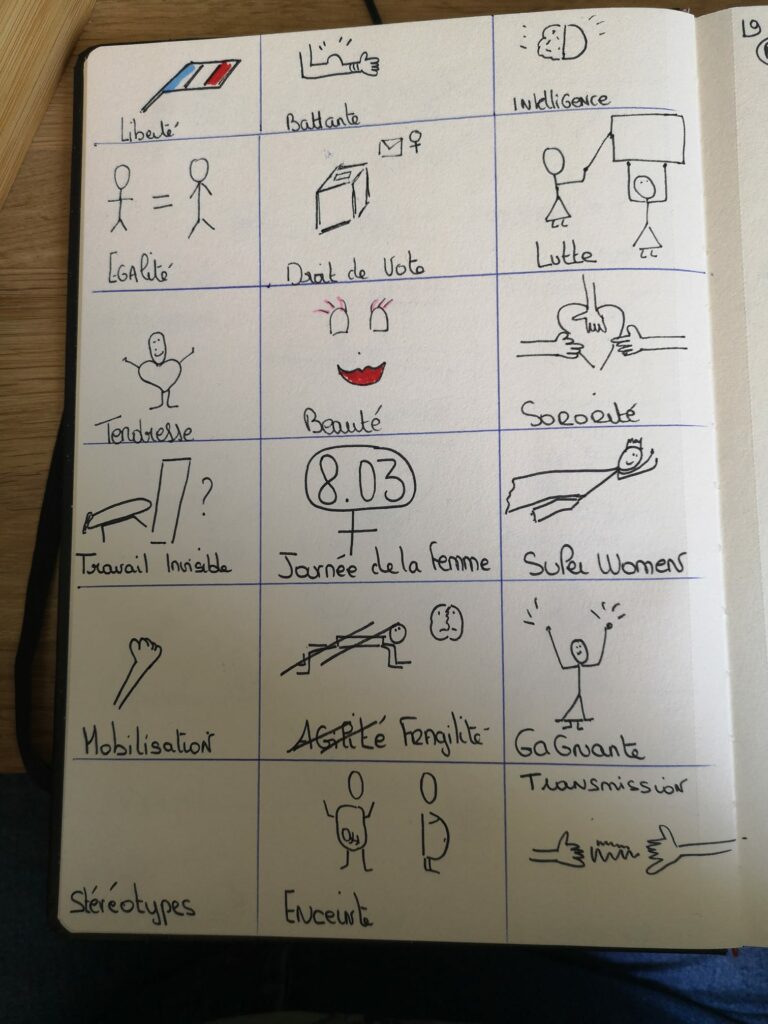 Liberté
Battante
Intelligence
Egalité
=
Droit de Vote
Lutte
Tendresse
Beauté
Sororité
?
Travail Invisible
8.03
Journée de la Femme
Super Women
Mobilisation
Agilité Fengilité
Gagnante
Stéréotypes
Enceinte
Transmission
19